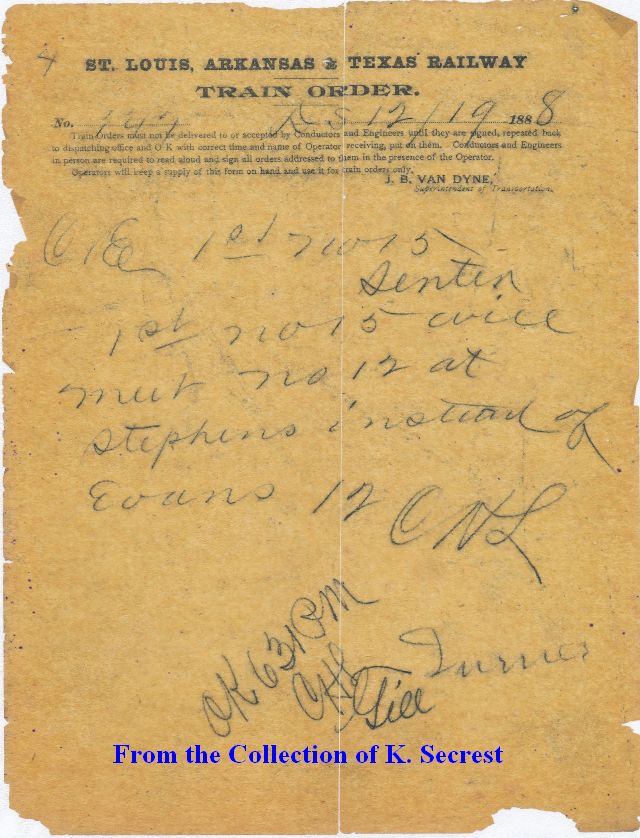 ST. LOUIS, ARKANSAS & TEXAS RAILWAY
TRAIN ORDER.
No. DS 12/19 1888
Train Orders must not be delivered to or accepted by Conductors and Engineers until they are signed, repeated back
to dispatching office and O K with correct time and name of Operator receiving, put on them. Conductors and Engineers
in person are required to read aloud and sign all orders addressed to them in the presence of the Operator.
Operators will keep a supply of this form on hand and use it for train orders only.
J. B. VAN DYNE,
Superintendent of Transportation.
C & E 1st no 15
Senter
1st no 15 will
meet no 12 at
Stephens instead of
Evans 12 CNL
OK 631 PM
Till Turner
From the Collection of K. Secrest